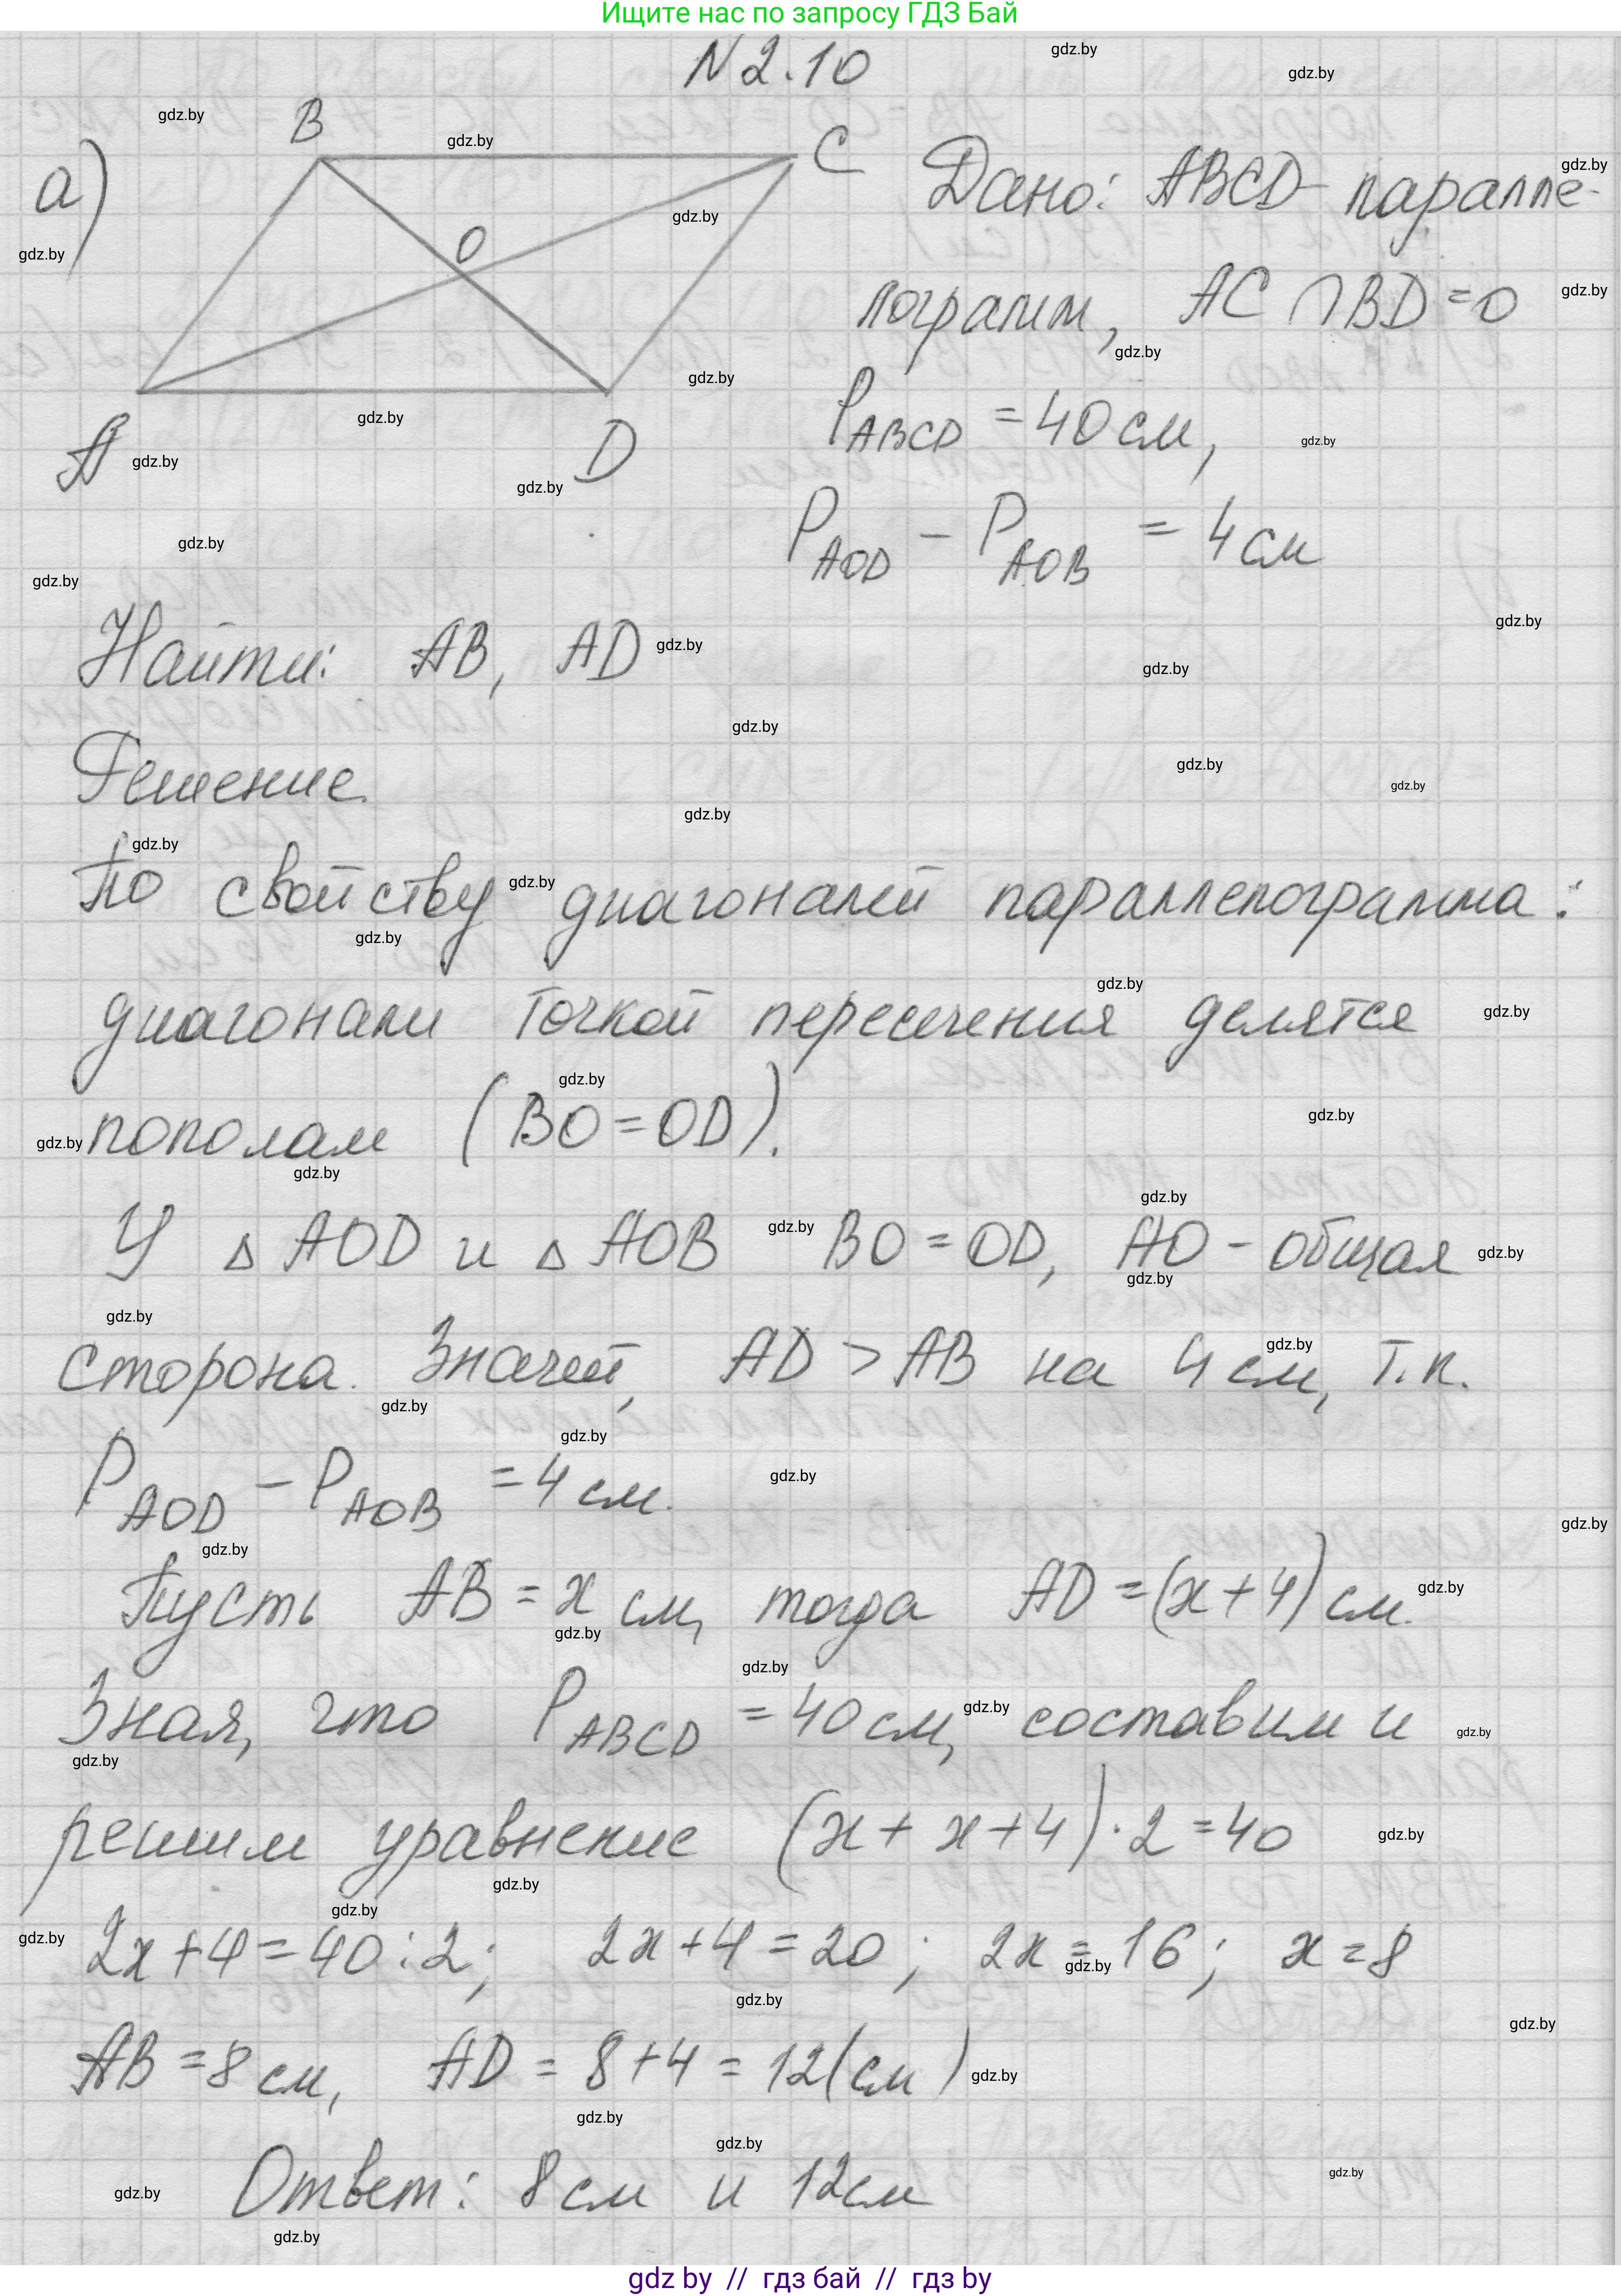 Ищите нас по запросу ГДЗ Бай
N 2.10
а)
B
C
O
A
D
Дано: ABCD - паралле-
лограмм, AC ∩ BD = O
P ABCD = 40 см,
P AOD - P AOB = 4 см
Найти: AB, AD
Решение.
По свойству диагоналей параллелограмма:
диагонали точкой пересечения делятся
пополам (BO = OD).
У △ AOD и △ AOB BO = OD, AO - общая
сторона. Значит, AD > AB на 4 см, т.к.
P AOD - P AOB = 4 см.
Пусть AB = x см, тогда AD = (x + 4) см.
Зная, что P ABCD = 40 см, составим и
решим уравнение (x + x + 4) · 2 = 40
2x + 4 = 40 : 2; 2x + 4 = 20; 2x = 16; x = 8
AB = 8 см, AD = 8 + 4 = 12 (см)
Ответ: 8 см и 12 см
gdz by // гдз бай // гдз by